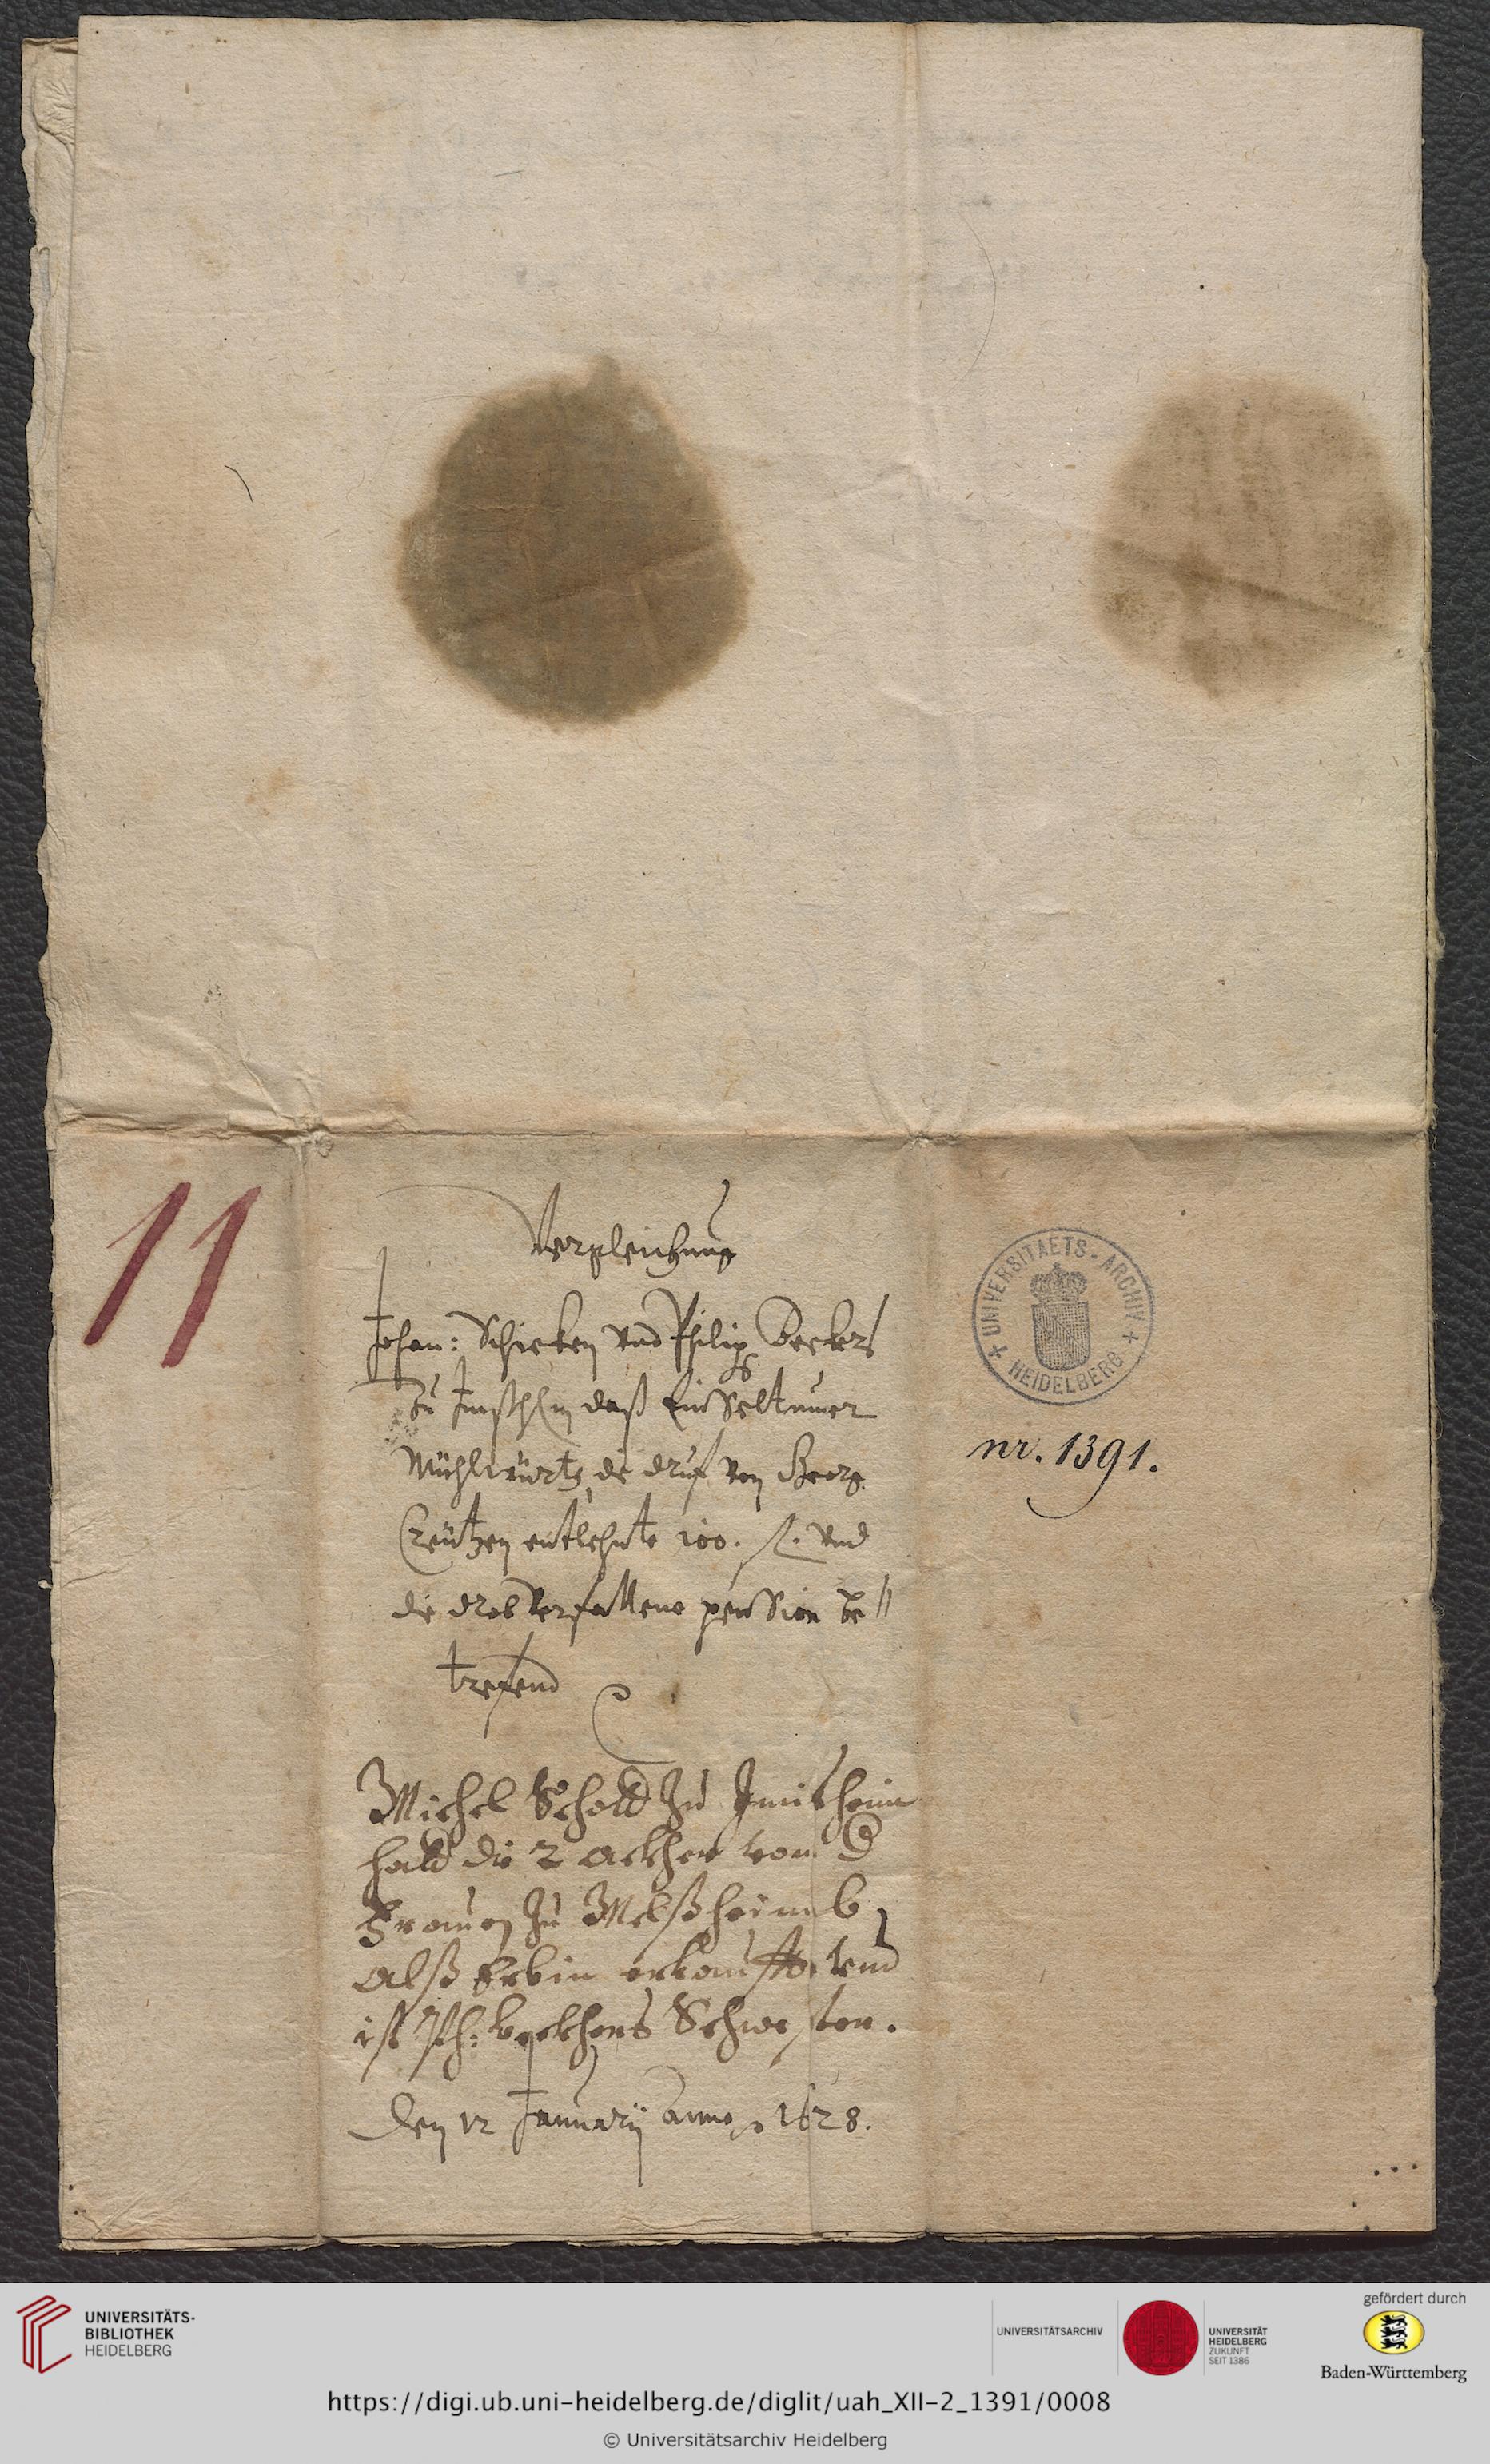 11
Vergleichung
Johan: Schicken vnd Philips Beckers
zu daß
Mühlwürtz, die druf von Georg
Creützen entlehnte 100. fl. vnd
die drob verfallene pension be//
trefend
Michel Schold zu
hatt die 2 ackher von d
Frauen zu Melßheimb,
alß Erbin erkaufft vnd
ist Ph: beckhers Schwester.
Den 12 January Anno 1628.
UNIVERSITAETS-ARCHIV
HEIDELBERG
nr. 1391.
UNIVERSITÄTS-
BIBLIOTHEK
HEIDELBERG
UNIVERSITÄTSARCHIV
UNIVERSITÄT
HEIDELBERG
ZUKUNFT
SEIT 1386
gefördert durch
Baden-Württemberg
https://digi.ub.uni-heidelberg.de/diglit/uah_XII-2_1391/0008
© Universitätsarchiv Heidelberg